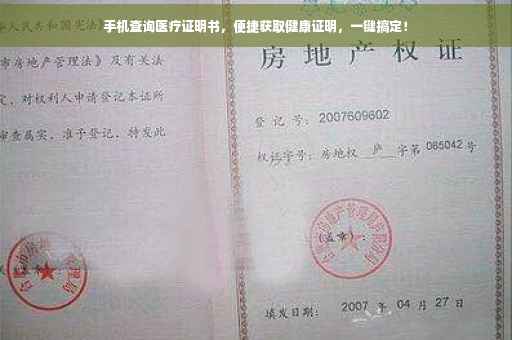 手机查询医疗证明书，便捷获取健康证明，一键搞定！
人民共和国宪法》
市房地产管理法》及有关法
定，对权利人申请登记本证所
审查属实，准予登记，特发此
房地产权证
登记号：2007609602
权证字号：房地权 庐 字第 085042 号
(盖章)：
填发日期：2007 年 04 月 27 日